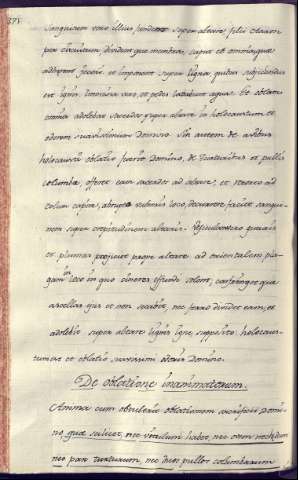 sanguinem vero illius fundent super altare filii Aaron
per circuitum divident que membra, caput et omnia quae
adhaerent jecori et imponent super ligna quibus subjiciendus
est ignis, intestina vero, et pedes lavabunt aqua et oblata
omnia adolebit sacerdos super altare in holocaustum et
odorem suavissimum Domino. Sin autem de avibus
holocausti oblatio fuerit Domino, de Turturibus et pullis
columbae, offeret eam sacerdos ad altare, et retorto ad
collum capite, ac rupto vulneris loco, decurrere faciet sangui-
nem super crepidinem altaris. Vesiculam vero gutturis
et plumas projiciet prope altare ad orientalem pla-
gam in loco in quo cineres effundi solent, confringet que
ascellas ejus et non secabit, nec ferro dividet eam, et
adolebit super altare lignis igne supposito holocaus-
tum est et oblatio suavissimi odoris Domino.
De oblatione inanimatorum.
Anima cum obtulerit oblationem sacrificii Domi-
no quae scilicet, nec vitulum habet, nec ovem nec hædum
nec par turturum, nec duos pullos columbarum